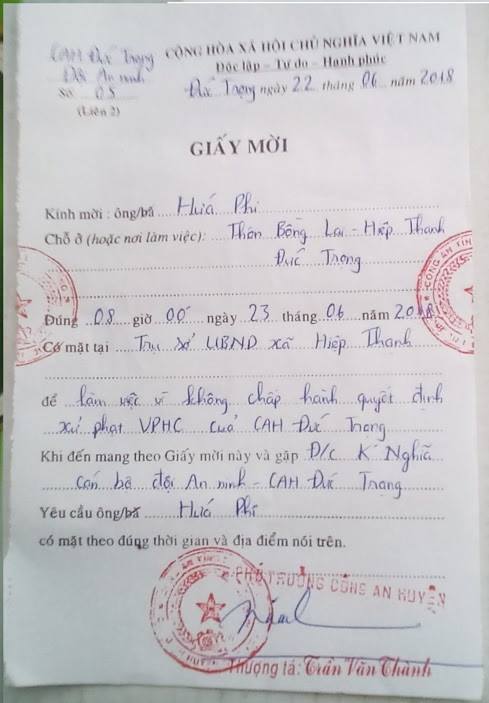 CAH Đức Trọng
Đội An ninh
Số 05
(Liên 2)
CỘNG HÒA XÃ HỘI CHỦ NGHĨA VIỆT NAM
Độc lập - Tự do - Hạnh phúc
Đức Trọng ngày 22 tháng 06 năm 2018
GIẤY MỜI
Kính mời : ông/bà Huá Phi
Chỗ ở (hoặc nơi làm việc): Thôn Bồng Lai - Hiệp Thanh
Đức Trọng
Đúng 08 giờ 00 ngày 23 tháng 06 năm 2018
Có mặt tại Trụ sở UBND xã Hiệp Thanh
để làm việc vì không chấp hành quyết định
xử phạt VPHC của CAH Đức Trọng
Khi đến mang theo Giấy mời này và gặp Đ/c K' Nghĩa
cán bộ đội An ninh - CAH Đức Trọng
Yêu cầu ông/bà Huá Phi
có mặt theo đúng thời gian và địa điểm nói trên.
PHÓ TRƯỞNG CÔNG AN HUYỆN
Thượng tá: Trần Văn Thành